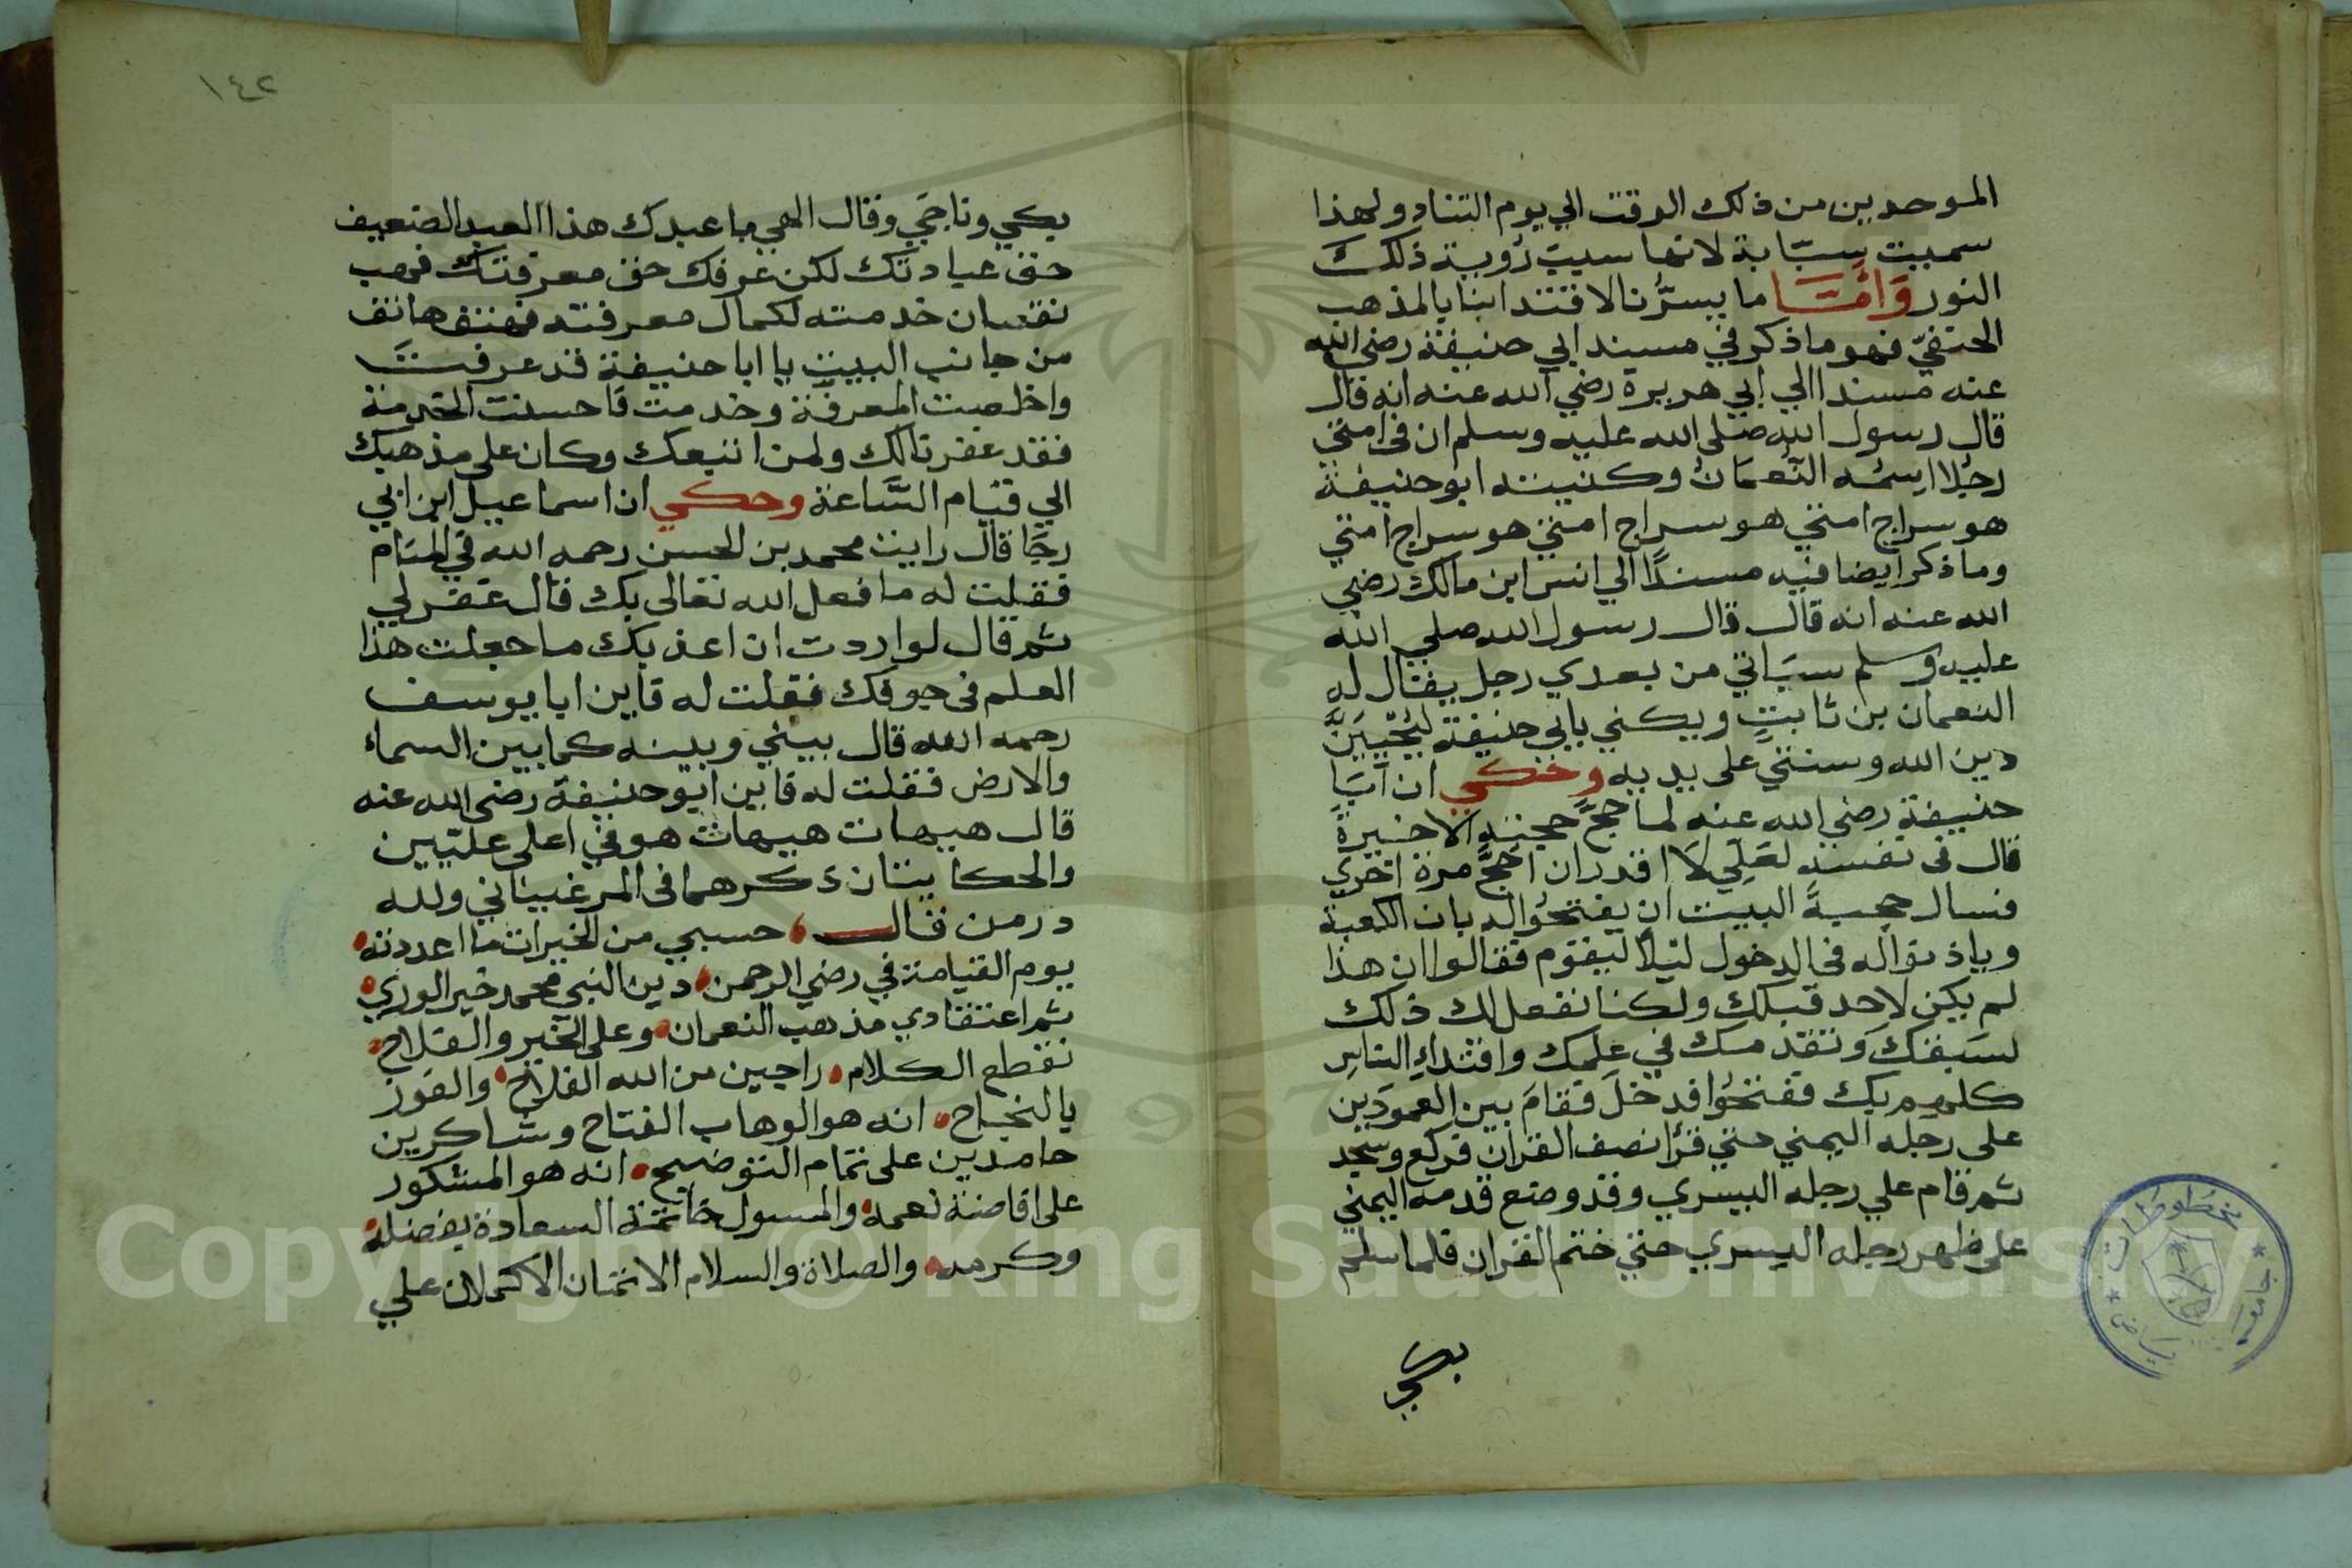 الموحدين من ذلك الوقت الي يوم التناد ولهذا
سميت سبّابة لانها سببت رُوية ذلك
النور وَامَّا ما يسرُّنا لاقتداينا بالمذهب
الحنفيّ فهو ما ذكر في مسند ابي حنيفة رضي الله
عنه مسندا الي ابي هريرة رضي الله عنه انه قال
قال رسول الله صلى الله عليه وسلم ان في امتي
رجُلا اسمُه النُّعمَانُ وكنيته ابو حنيفة
هو سراج امتي هو سراج امتي هو سراج امتي
وما ذكر ايضا فيه مسندًا الي انس ابن مالك رضي
الله عنه انه قال قال رسول الله صلي الله
عليه وسلم سيَاتي من بعدي رجل يقال له
النعمان بن ثابتٍ ويكني بابي حنيفة ليُحْيِيَنَّ
دين الله وسنتي على يديه وحكي ان ابَا
حنيفة رضي الله عنه لما حجَّ حجته الاخيرة
قال في نفسه لعَلِّي لَا اقدر ان احُجَّ مرة اخري
فسال حجبةَ البيت ان يفتحُوا له باب الكعبة
وياذنوا له في الدخول ليلًا ليقوم فقالوا ان هذا
لم يكن لاحد قبلك ولكنا نفعل لك ذلك
لسَبقكَ وتقدمك في علمك واقتداءِ الناسِ
كلهم بك ففتحُوا فدخلَ فقامَ بين العمودَين
على رجله اليمني حتي قرُا نصف القران فركع وسجد
ثم قام علي رجله اليسري وقد وضع قدمه اليمني
على ظهر رجله اليسري حتي ختم القران فلما سلم
بكي
١٤٢
بكي وناجَي وقال الهي ما عبدك هذا العبد الضعيف
حق عبادتك لكن عرفك حق معرفتك فهب
نقصان خدمته لكمال معرفته فهتف هاتف
من جانب البيت يا ابا حنيفة قد عرفتَ
واخلصت المعرفة وخدمت فاحسنت الخدمة
فقد غفرنا لك ولمن اتبعك وكان على مذهبك
الي قيام السَّاعة وحكي ان اسماعيل ابن ابي
رجَا قال رايت محمد بن الحسن رحمه الله في المنام
فقلت له ما فعل الله تعالى بك قال غفر لي
ثم قال لو اردت ان اعذبك ما جعلت هذا
العلم في جوفك فقلت له فاين ابا يوسف
رحمه الله قال بيني وبينه كما بين السماء
والارض فقلت له فاين ابو حنيفة رضي الله عنه
قال هيهات هيهات هو في اعلى علّيين
والحكايتان ذكرهما في المرغيناني ولله
در من قال حسبي من الخيرات ما اعددته
يوم القيامة في رضي الرحمن دين النبي محمد خير الوري
ثم اعتقادي مذهب النعمان وعلى الخير والفلاح
نقطع الكلام راجين من الله الفلاح والفوز
بالنجاح انه هو الوهاب الفتاح وشاكرين
حامدين على تمام التوضيح انه هو المشكور
على افاضة نعمه والمسول خاتمة السعادة بفضله
وكرمه والصلاة والسلام الاتمان الاكملان علي
Copyright © King Saud University
1957